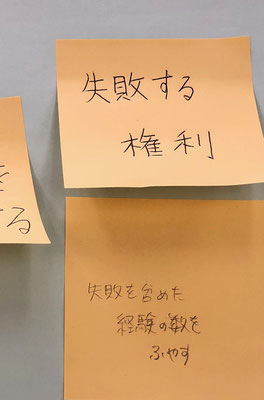 失敗する
権利
する
失敗を含めた
経験の数を
ふやす